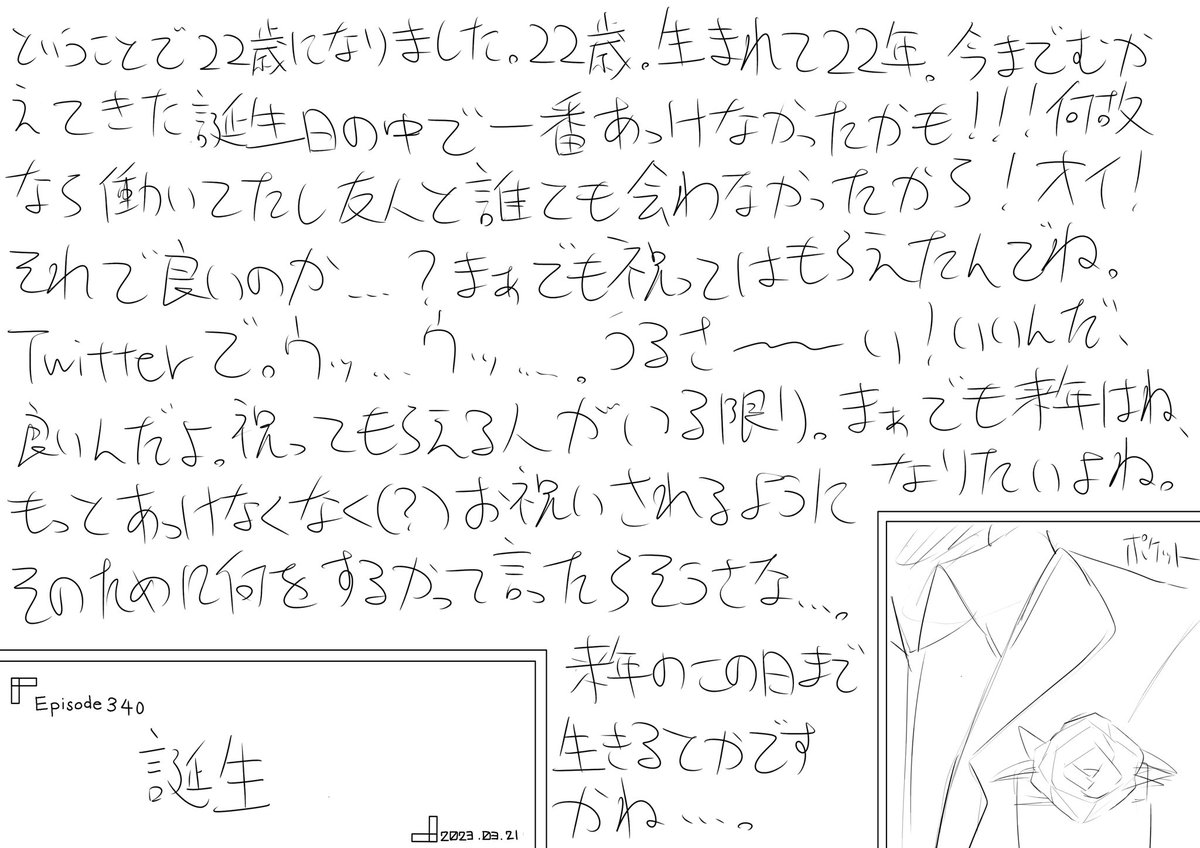 ということで22歳になりました。22歳。生まれて22年。今までむか
えてきた誕生日の中で一番あっけなかったかも!!!何故
なら働いてたし友人と誰ても会わなかったから!オイ!
それで良いのか…?まぁでも祝ってはもらえたんでね。
Twitterで。ウッ…ウッ…。うるさ〜〜い!いいんだ、
良いんだよ。祝ってもらえる人がいる限り。まぁでも来年はね、
もっとあっけなくなく(?)お祝いされるように
なりたいよね。
そのために何をするかって言ったらそうさな…。
来年のこの日まで
生きるとかです
かね…。
ポケット
Episode 340
誕生
2023.03.21